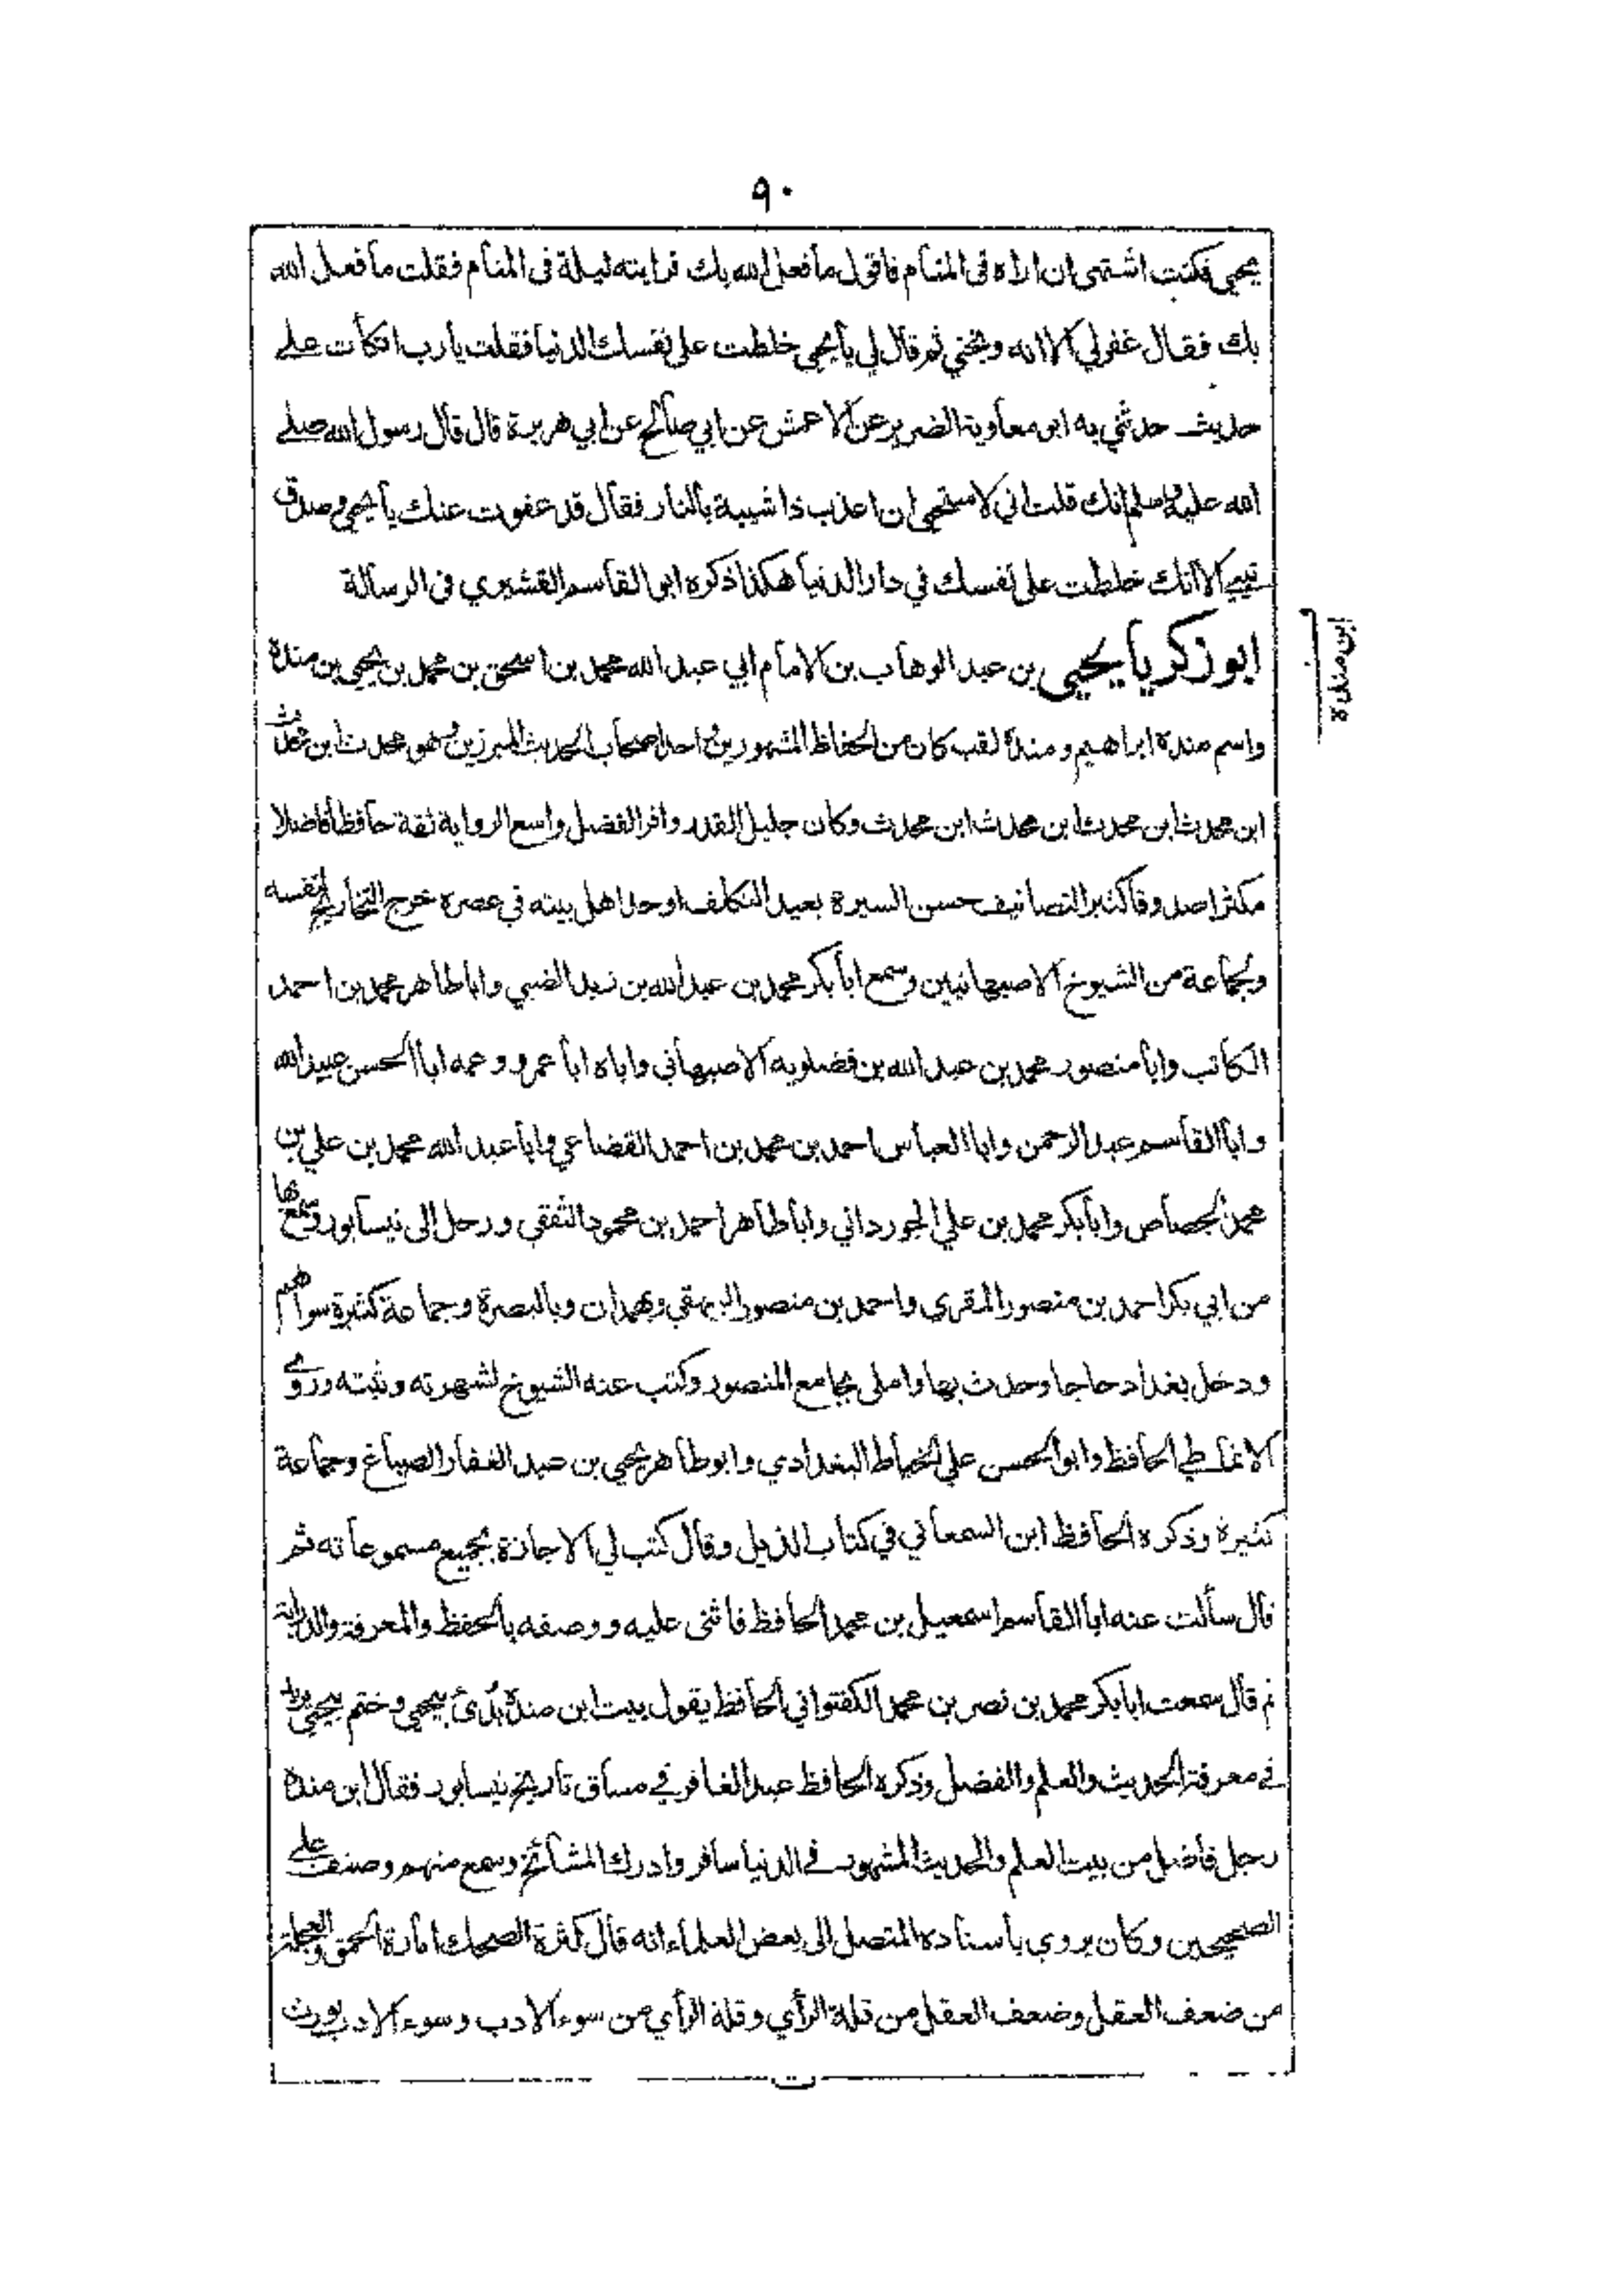 ٩٠
يحيى فكنت اشتهى ان اراه فى المنام فاقول ما فعل الله بك فرايته ليلة فى المنام فقلت ما فعل الله
بك فقال غفرلي الا انه وبخني ثم قال لي يا يحيى خلطت على نفسك الدنيا فقلت يا رب اتكأت على
حديث حدثني به ابو معاوية الضرير عن الاعمش عن ابي صالح عن ابي هريرة قال قال رسول الله صلى
الله عليه وسلم انك قلت اني لاستحيى ان اعذب ذا شيبة بالنار فقال قد عفوت عنك يا يحيى وصدق
نبيي الا انك خلطت على نفسك في دار الدنيا هكذا ذكره ابو القاسم القشيري فى الرسالة
ابن منده
ابو زكريا يحيى بن عبد الوهاب بن الامام ابي عبد الله محمد بن اسحق بن محمد بن يحيى بن مندة
واسم مندة ابراهيم ومندة لقب كان من الحفاظ المشهورين واحد اصحاب الحديث المبرزين وهو محدث ابن محدث
ابن محدث ابن محدث ابن محدث ابن محدث وكان جليل القدر وافر الفضل واسع الرواية ثقة حافظا فاضلا
مكثرا صدوقا كثير التصانيف حسن السيرة بعيد التكلف اوحد اهل بيته في عصره خرج التخاريج لنفسه
ولجماعة من الشيوخ الاصبهانيين وسمع ابا بكر محمد بن عبد الله بن زيد الضبي وابا طاهر محمد بن احمد
الكاتب وابا منصور محمد بن عبد الله بن فضلويه الاصبهاني واباه ابا عمرو وعمه ابا الحسن عبيد الله
وابا القاسم عبد الرحمن وابا العباس احمد بن محمد بن احمد القضاعي وابا عبد الله محمد بن علي بن
محمد الجصاص وابا بكر محمد بن علي الجورداني وابا طاهر احمد بن محمود الثقفى ورحل الى نيسابور وسمع بها
من ابي بكر احمد بن منصور المقري واحمد بن منصور البيهقي وبهمدان وبالبصرة وجماعة كثيرة سواهم
ودخل بغداد حاجا وحدث بها واملى بجامع المنصور وكتب عنه الشيوخ لشهرته وثبته وروى
الانماطي الحافظ وابو الحسن علي الخياط البغدادي وابو طاهر يحيى بن عبد الغفار الصباغ وجماعة
كثيرة وذكره الحافظ ابن السمعاني في كتاب الذيل وقال كتب لي الاجازة بجميع مسموعاته ثم
قال سألت عنه ابا القاسم اسمعيل بن محمد الحافظ فاثنى عليه ووصفه بالحفظ والمعرفة والدراية
ثم قال سمعت ابا بكر محمد بن نصر بن محمد الكفتواني الحافظ يقول بيت ابن مندة بُدئ بيحيى وختم بيحيى يريد
في معرفة الحديث والعلم والفضل وذكره الحافظ عبد الغافر في مساق تاريخ نيسابور فقال ابن مندة
رجل فاضل من بيت العلم والحديث المشهور في الدنيا سافر وادرك المشائخ وسمع منهم وصنف على
الصحيحين وكان يروي باسناده المتصل الى بعض العلماء انه قال كثرة الضحك امارة الحمق والعجلة
من ضعف العقل وضعف العقل من قلة الرأي وقلة الرأي من سوء الادب وسوء الادب يورث